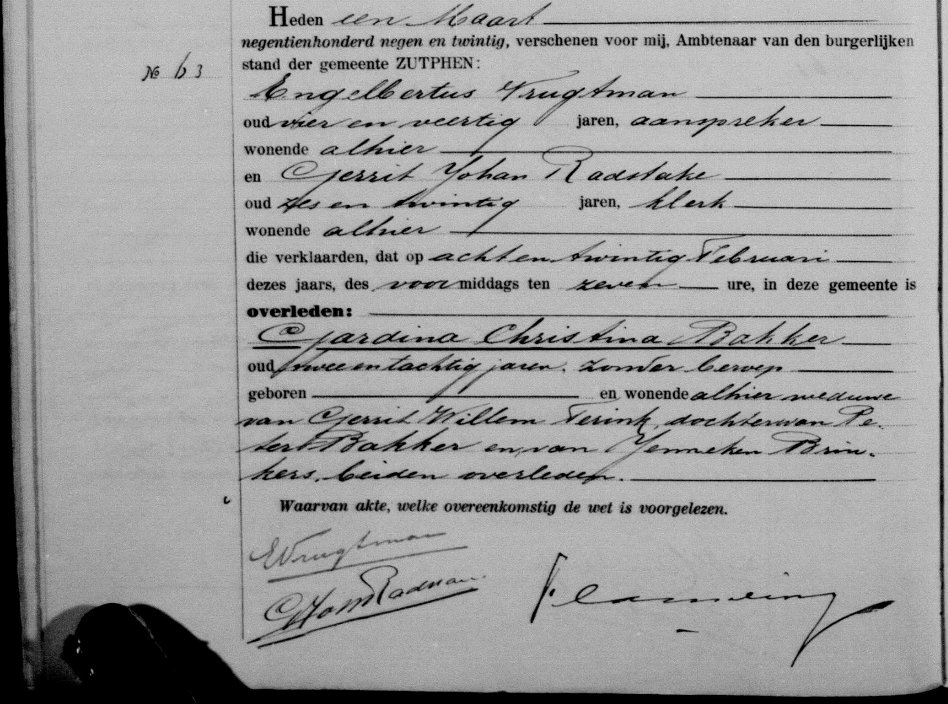 Heden een Maart
negentienhonderd negen en twintig, verschenen voor mij, Ambtenaar van den burgerlijken
№ 63
stand der gemeente ZUTPHEN:
Engelbertus Vrugtman
oud vier en veertig jaren, aanspreker
wonende alhier
en Gerrit Johan Radstake
oud zes en twintig jaren, klerk
wonende alhier
die verklaarden, dat op acht en twintig Februari
dezes jaars, des voormiddags ten zeven ure, in deze gemeente is
overleden:
Gardina Christina Bakker
oud twee en tachtig jaren, zonder beroep
geboren en wonende alhier weduwe
van Gerrit Willem Terink, dochter van Pe-
ter Bakker en van Jenneken Brin-
kers, beiden overleden.
Waarvan akte, welke overeenkomstig de wet is voorgelezen.
EVrugtman